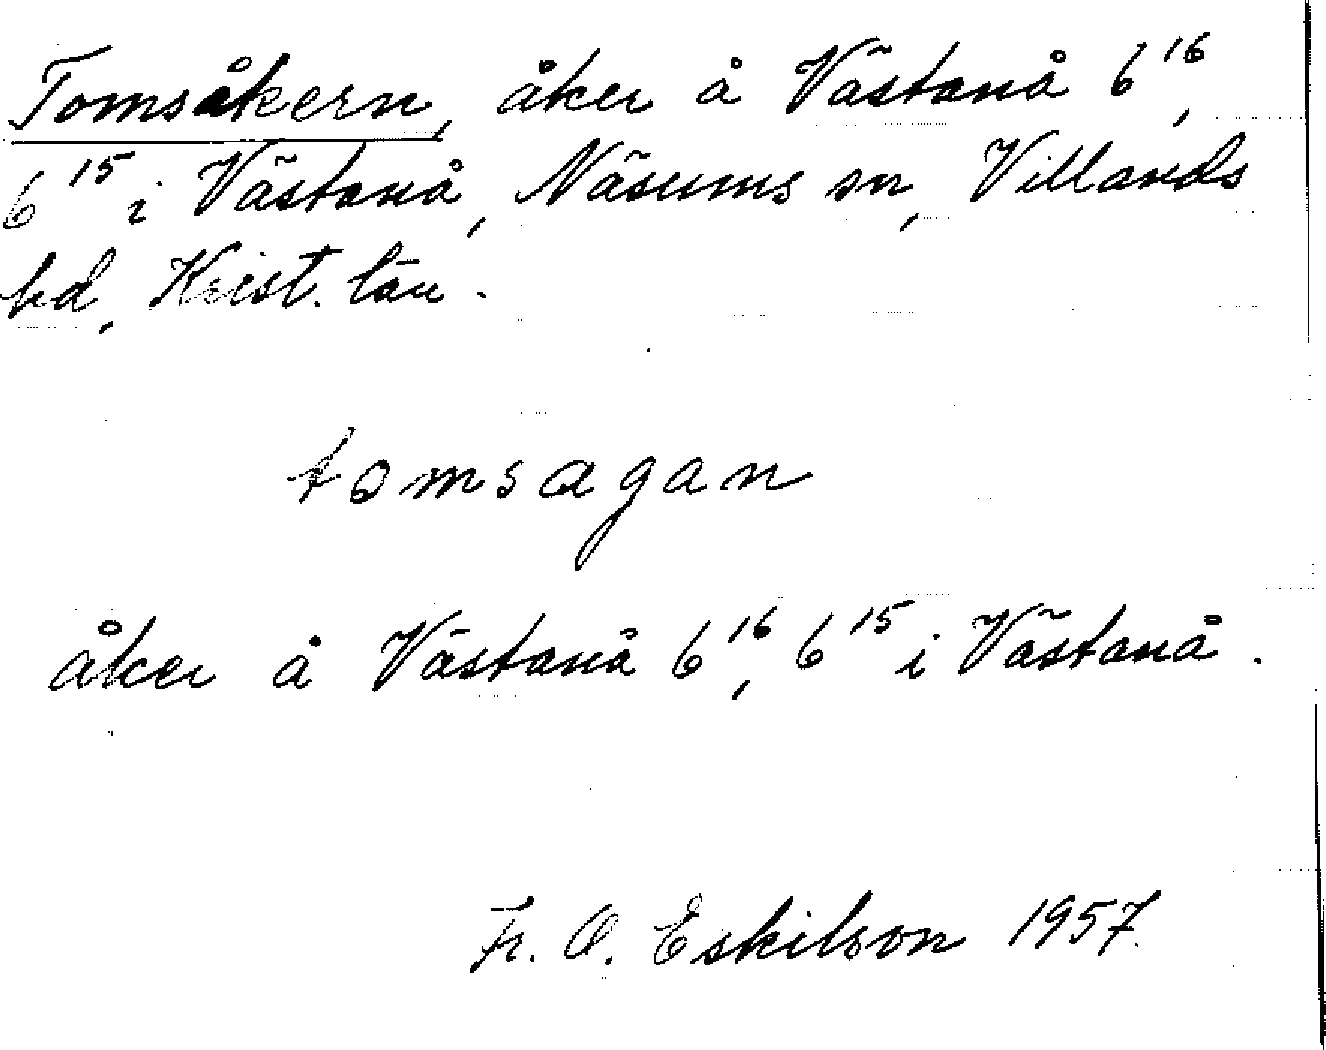 Tomsåkern, åker å Västanå 6¹⁶,
6¹⁵ i Västanå, Näsums sn, Villands
hd, Krist. län.
tomsagan
åker å Västanå 6¹⁶, 6¹⁵ i Västanå.
Fr. O. Eskilson 1957.